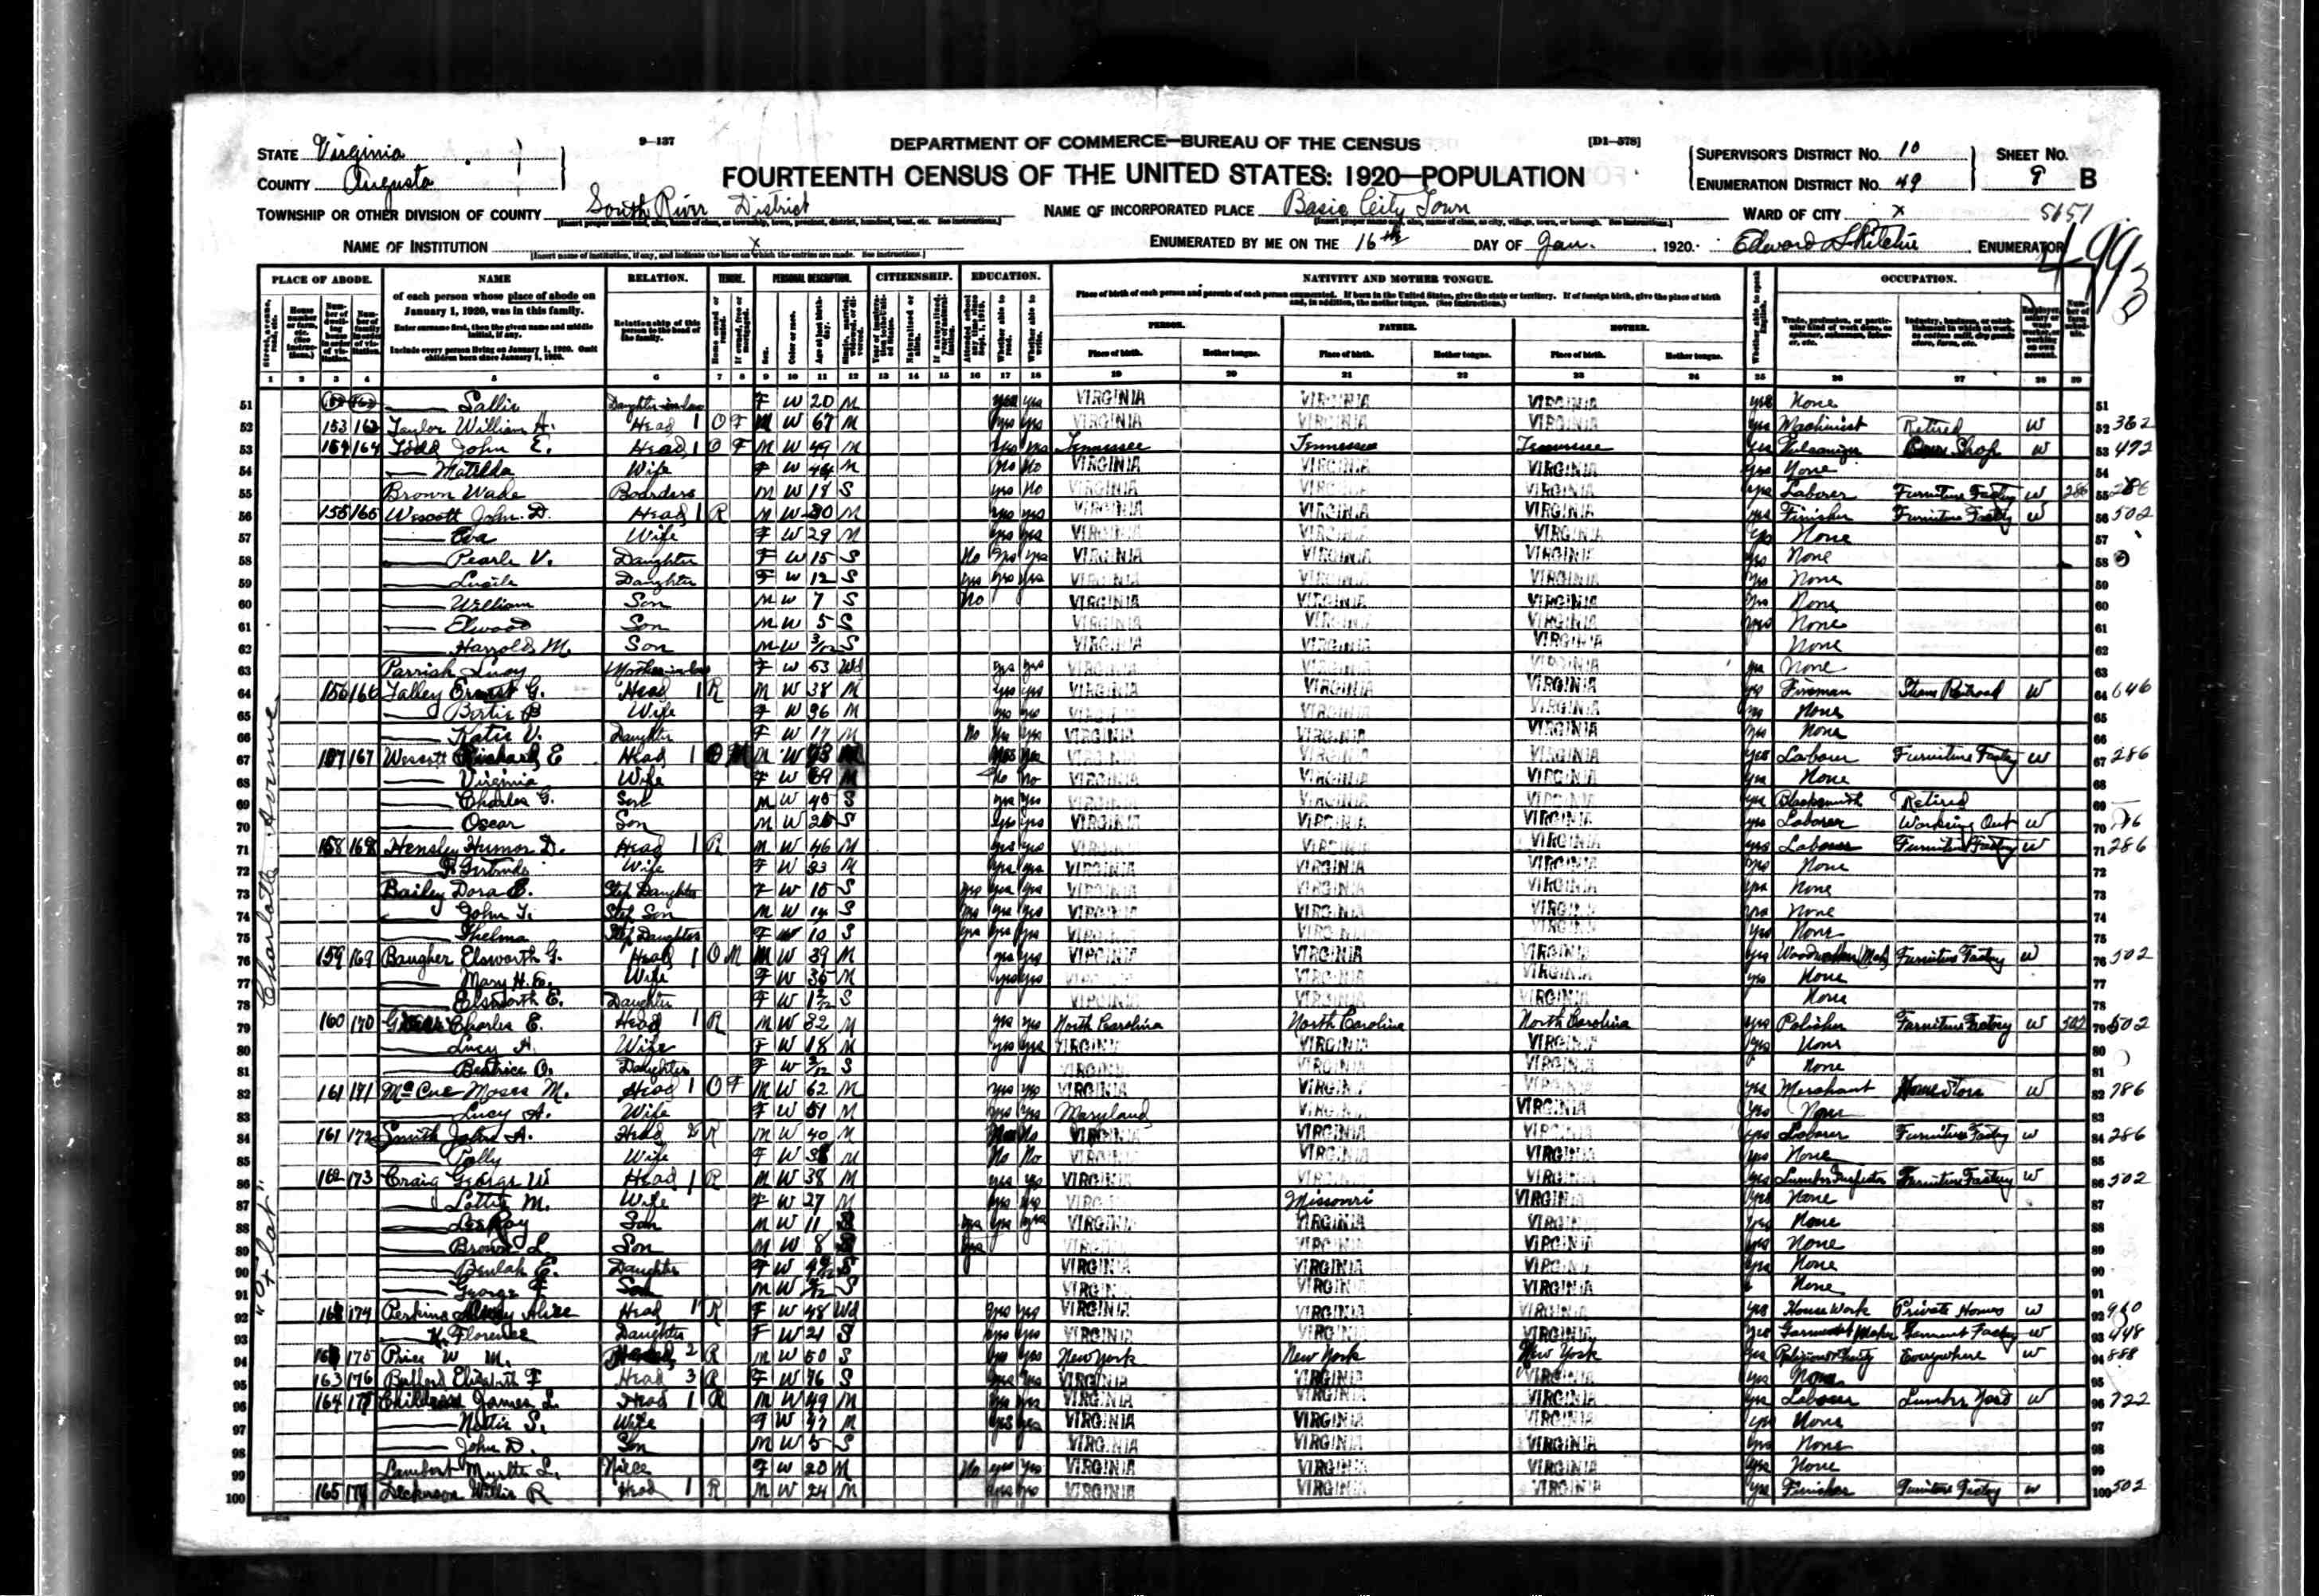 9—137
DEPARTMENT OF COMMERCE—BUREAU OF THE CENSUS
[D1—578]
STATE Virginia
COUNTY Augusta
FOURTEENTH CENSUS OF THE UNITED STATES: 1920—POPULATION
SUPERVISOR'S DISTRICT No. 10
ENUMERATION DISTRICT No. 49
SHEET No. 9 B
TOWNSHIP OR OTHER DIVISION OF COUNTY South River District
NAME OF INCORPORATED PLACE Basic City Town
WARD OF CITY x
5651
NAME OF INSTITUTION x
ENUMERATED BY ME ON THE 16th DAY OF Jan. , 1920. Edward ENUMERATOR
PLACE OF ABODE. NAME RELATION. TENURE. PERSONAL DESCRIPTION. CITIZENSHIP. EDUCATION. NATIVITY AND MOTHER TONGUE. OCCUPATION.
of each person whose place of abode on January 1, 1920, was in this family.
Enter surname first, then the given name and middle initial, if any.
Include every person living on January 1, 1920. Omit children born since January 1, 1920.
Relationship of this person to the head of the family.
Place of birth of each person and parents of each person enumerated. If born in the United States, give the state or territory. If of foreign birth, give the place of birth and, in addition, the mother tongue. (See instructions.)
PERSON. FATHER. MOTHER.
Place of birth. Mother tongue. Place of birth. Mother tongue. Place of birth. Mother tongue.
1 2 3 4 5 6 7 8 9 10 11 12 13 14 15 16 17 18 19 20 21 22 23 24 25 26 27 28 29
Charlotte Avenue
51 Sallie Daughter-in-law F W 20 M yes yes VIRGINIA VIRGINIA VIRGINIA yes None 51
52 153 163 William H. Head 1 O F M W 67 M yes yes VIRGINIA VIRGINIA VIRGINIA yes Machinist Retired W 52 382
53 154 164 Todd John E. Head 1 O F M W 49 M yes yes Tennessee Tennessee Tennessee yes Shop W 53 492
54 Matilda Wife F W 44 M No No VIRGINIA VIRGINIA VIRGINIA yes None 54
55 Brown Wade Boarder M W 18 S yes No VIRGINIA VIRGINIA VIRGINIA yes Laborer Furniture Factory W 286 55 286
56 155 165 Wescott John D. Head 1 R M W 30 M yes yes VIRGINIA VIRGINIA VIRGINIA yes Finisher Furniture Factory W 56 502
57 Eva Wife F W 29 M yes yes VIRGINIA VIRGINIA VIRGINIA yes None 57
58 Pearle V. Daughter F W 15 S No yes yes VIRGINIA VIRGINIA VIRGINIA yes None 58
59 Lucile Daughter F W 12 S yes yes yes VIRGINIA VIRGINIA VIRGINIA yes None 59
60 William Son M W 7 S No VIRGINIA VIRGINIA VIRGINIA yes None 60
61 Elwood Son M W 5 S VIRGINIA VIRGINIA VIRGINIA yes None 61
62 Harrold M. Son M W 3/12 S VIRGINIA VIRGINIA VIRGINIA None 62
63 Parrish Lucy Mother-in-law F W 53 Wd yes yes VIRGINIA VIRGINIA VIRGINIA yes None 63
64 156 166 Talley Ernest G. Head 1 R M W 38 M yes yes VIRGINIA VIRGINIA VIRGINIA yes Fireman Steam Railroad W 64 646
65 Bertie B Wife F W 36 M yes yes VIRGINIA VIRGINIA VIRGINIA yes None 65
66 Katie V. Daughter F W 17 M No yes yes VIRGINIA VIRGINIA VIRGINIA yes None 66
67 157 167 Wescott Richard E Head 1 O M M W M yes yes VIRGINIA VIRGINIA VIRGINIA yes Laborer Furniture Factory W 67 286
68 Virginia Wife F W 69 M No No VIRGINIA VIRGINIA VIRGINIA yes None 68
69 Charles G. Son M W 45 S yes yes VIRGINIA VIRGINIA VIRGINIA yes Blacksmith Retired 69
70 Oscar Son M W S yes yes VIRGINIA VIRGINIA VIRGINIA yes Laborer Working Out W 70
71 158 168 Hensley Humor D. Head 1 R M W 46 M yes yes VIRGINIA VIRGINIA VIRGINIA yes Laborer Furniture Factory W 71 286
72 F. Gertrude Wife F W 33 M yes yes VIRGINIA VIRGINIA VIRGINIA yes None 72
73 Bailey Dora E. Step Daughter F W 15 S yes yes yes VIRGINIA VIRGINIA VIRGINIA yes None 73
74 John T. Step Son M W 14 S yes yes yes VIRGINIA VIRGINIA VIRGINIA yes None 74
75 Thelma Step Daughter F W 10 S yes yes yes VIRGINIA VIRGINIA VIRGINIA yes None 75
76 159 169 Baugher Elsworth G. Head 1 O M M W 39 M yes yes VIRGINIA VIRGINIA VIRGINIA yes Furniture Factory W 76 502
77 Mary H. E. Wife F W 35 M yes yes VIRGINIA VIRGINIA VIRGINIA yes None 77
78 Elsworth E. Daughter F W S VIRGINIA VIRGINIA VIRGINIA None 78
79 160 170 Charles E. Head 1 R M W 32 M yes yes North Carolina North Carolina North Carolina yes Polisher Furniture Factory W 502 79 502
80 Lucy A. Wife F W 18 M yes yes VIRGINIA VIRGINIA VIRGINIA yes None 80
81 Beatrice O. Daughter F W S VIRGINIA VIRGINIA VIRGINIA None 81
82 161 171 McCue Moses M. Head 1 O F M W 62 M yes yes VIRGINIA VIRGINIA VIRGINIA yes Merchant Store W 82 786
83 Lucy A. Wife F W 51 M yes yes Maryland VIRGINIA VIRGINIA yes None 83
84 161 172 Smith John A. Head 2 R M W 40 M No No VIRGINIA VIRGINIA VIRGINIA yes Laborer Furniture Factory W 84 286
85 Polly Wife F W 38 M No No VIRGINIA VIRGINIA VIRGINIA yes None 85
"O + lat"
86 162 173 Craig George W Head 1 R M W 38 M yes yes VIRGINIA VIRGINIA VIRGINIA yes Lumber Inspector Furniture Factory W 86 502
87 Lottie M. Wife F W 27 M yes yes VIRGINIA Missouri VIRGINIA yes None 87
88 LeeRoy Son M W 11 S yes yes yes VIRGINIA VIRGINIA VIRGINIA yes None 88
89 Brown L. Son M W 8 S yes VIRGINIA VIRGINIA VIRGINIA yes None 89
90 Beulah E. Daughter F W S VIRGINIA VIRGINIA VIRGINIA yes None 90
91 George F Son M W S VIRGINIA VIRGINIA VIRGINIA None 91
92 163 174 Perkins Alice Head 1 R F W 48 Wd yes yes VIRGINIA VIRGINIA VIRGINIA yes House Work Private Homes W 92 960
93 K. Florence Daughter F W 21 S yes yes VIRGINIA VIRGINIA VIRGINIA yes Garment Maker Garment Factory W 93 448
94 163 175 Price W. M. Head 2 R M W 50 S yes yes New York New York New York yes Everywhere W 94 888
95 163 176 Ballard Elizabeth F Head 3 R F W 76 S yes yes VIRGINIA VIRGINIA VIRGINIA yes None 95
96 164 177 Childress James L. Head 1 R M W 49 M yes yes VIRGINIA VIRGINIA VIRGINIA yes Laborer Lumber Yard W 96 722
97 Nettie S. Wife F W 47 M yes yes VIRGINIA VIRGINIA VIRGINIA yes None 97
98 John D. Son M W 5 S VIRGINIA VIRGINIA VIRGINIA yes None 98
99 Lambert Myrtle L. Niece F W 20 M No yes yes VIRGINIA VIRGINIA VIRGINIA yes None 99
100 165 178 Willie R Head 1 R M W 24 M yes yes VIRGINIA VIRGINIA VIRGINIA yes Finisher Furniture Factory W 100 502